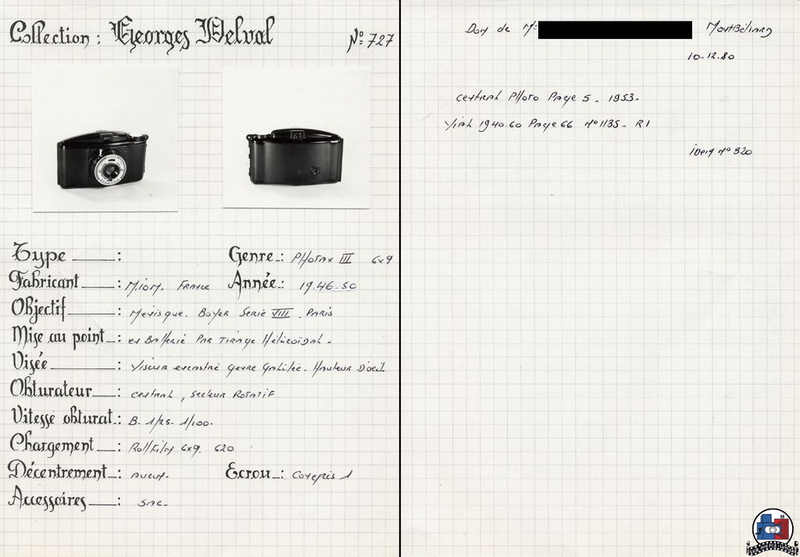 Collection : Georges Delval
Nº 727
Type : Genre : Photax III 6x9
Fabricant : M.I.O.M. France Année : 1946-50
Objectif : Menisque. Boyer Serie VIII. Paris
Mise au point : en Batterie Par Tirage Hélicoïdal.
Visée : Viseur excentré genre Galilée. Hauteur D'oeil
Obturateur : central, secteur Rotatif
Vitesse obturat. : B. 1/25. 1/100.
Chargement : Rollfilm 6x9 620
Décentrement : aucun. Ecrou : Congrès 1
Accessoires : sac.
Don de Mr Montbéliard
10-12-80
central Photo Page 5 - 1953.
Vial 1940.60 Page 66 nº1135 - R1
idem nº 320